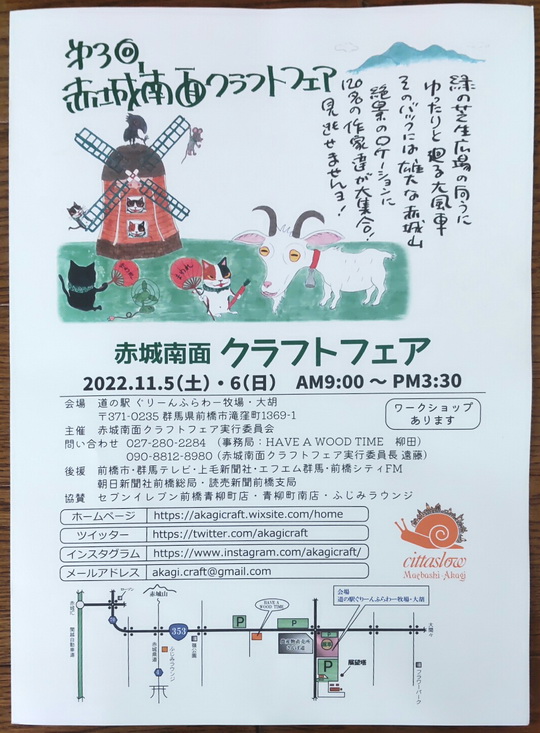 第3回
赤城南面クラフトフェア
緑の芝生広場の向うに
ゆったりと廻る大風車
そのバックには雄大な赤城山
絶景のロケーションに
120名の作家達が大集合!
見逃せませんヨ!
赤城南面 クラフトフェア
2022.11.5(土)・6(日) AM9:00 〜 PM3:30
会場 道の駅 ぐりーんふらわー牧場・大胡
〒371-0235 群馬県前橋市滝窪町1369-1
ワークショップ
あります
主催 赤城南面クラフトフェア実行委員会
問い合わせ 027-280-2284 (事務局:HAVE A WOOD TIME 柳田)
090-8812-8980 (赤城南面クラフトフェア実行委員長 遠藤)
後援 前橋市・群馬テレビ・上毛新聞社・エフエム群馬・前橋シティFM
朝日新聞社前橋総局・読売新聞前橋支局
協賛 セブンイレブン前橋青柳町店・青柳町南店・ふじみラウンジ
ホームページ https://akagicraft.wixsite.com/home
ツイッター https://twitter.com/akagicraft
インスタグラム https://www.instagram.com/akagicraft/
メールアドレス akagi.craft@gmail.com
cittaslow
Maebashi・Akagi
赤城山
HAVE A
WOOD TIME
会場
道の駅ぐりーんふらわー牧場・大胡
赤城IC
関越自動車道
353
赤城県道
ふじみラウンジ
P
P
P
展望塔
大間々
フラワーパーク